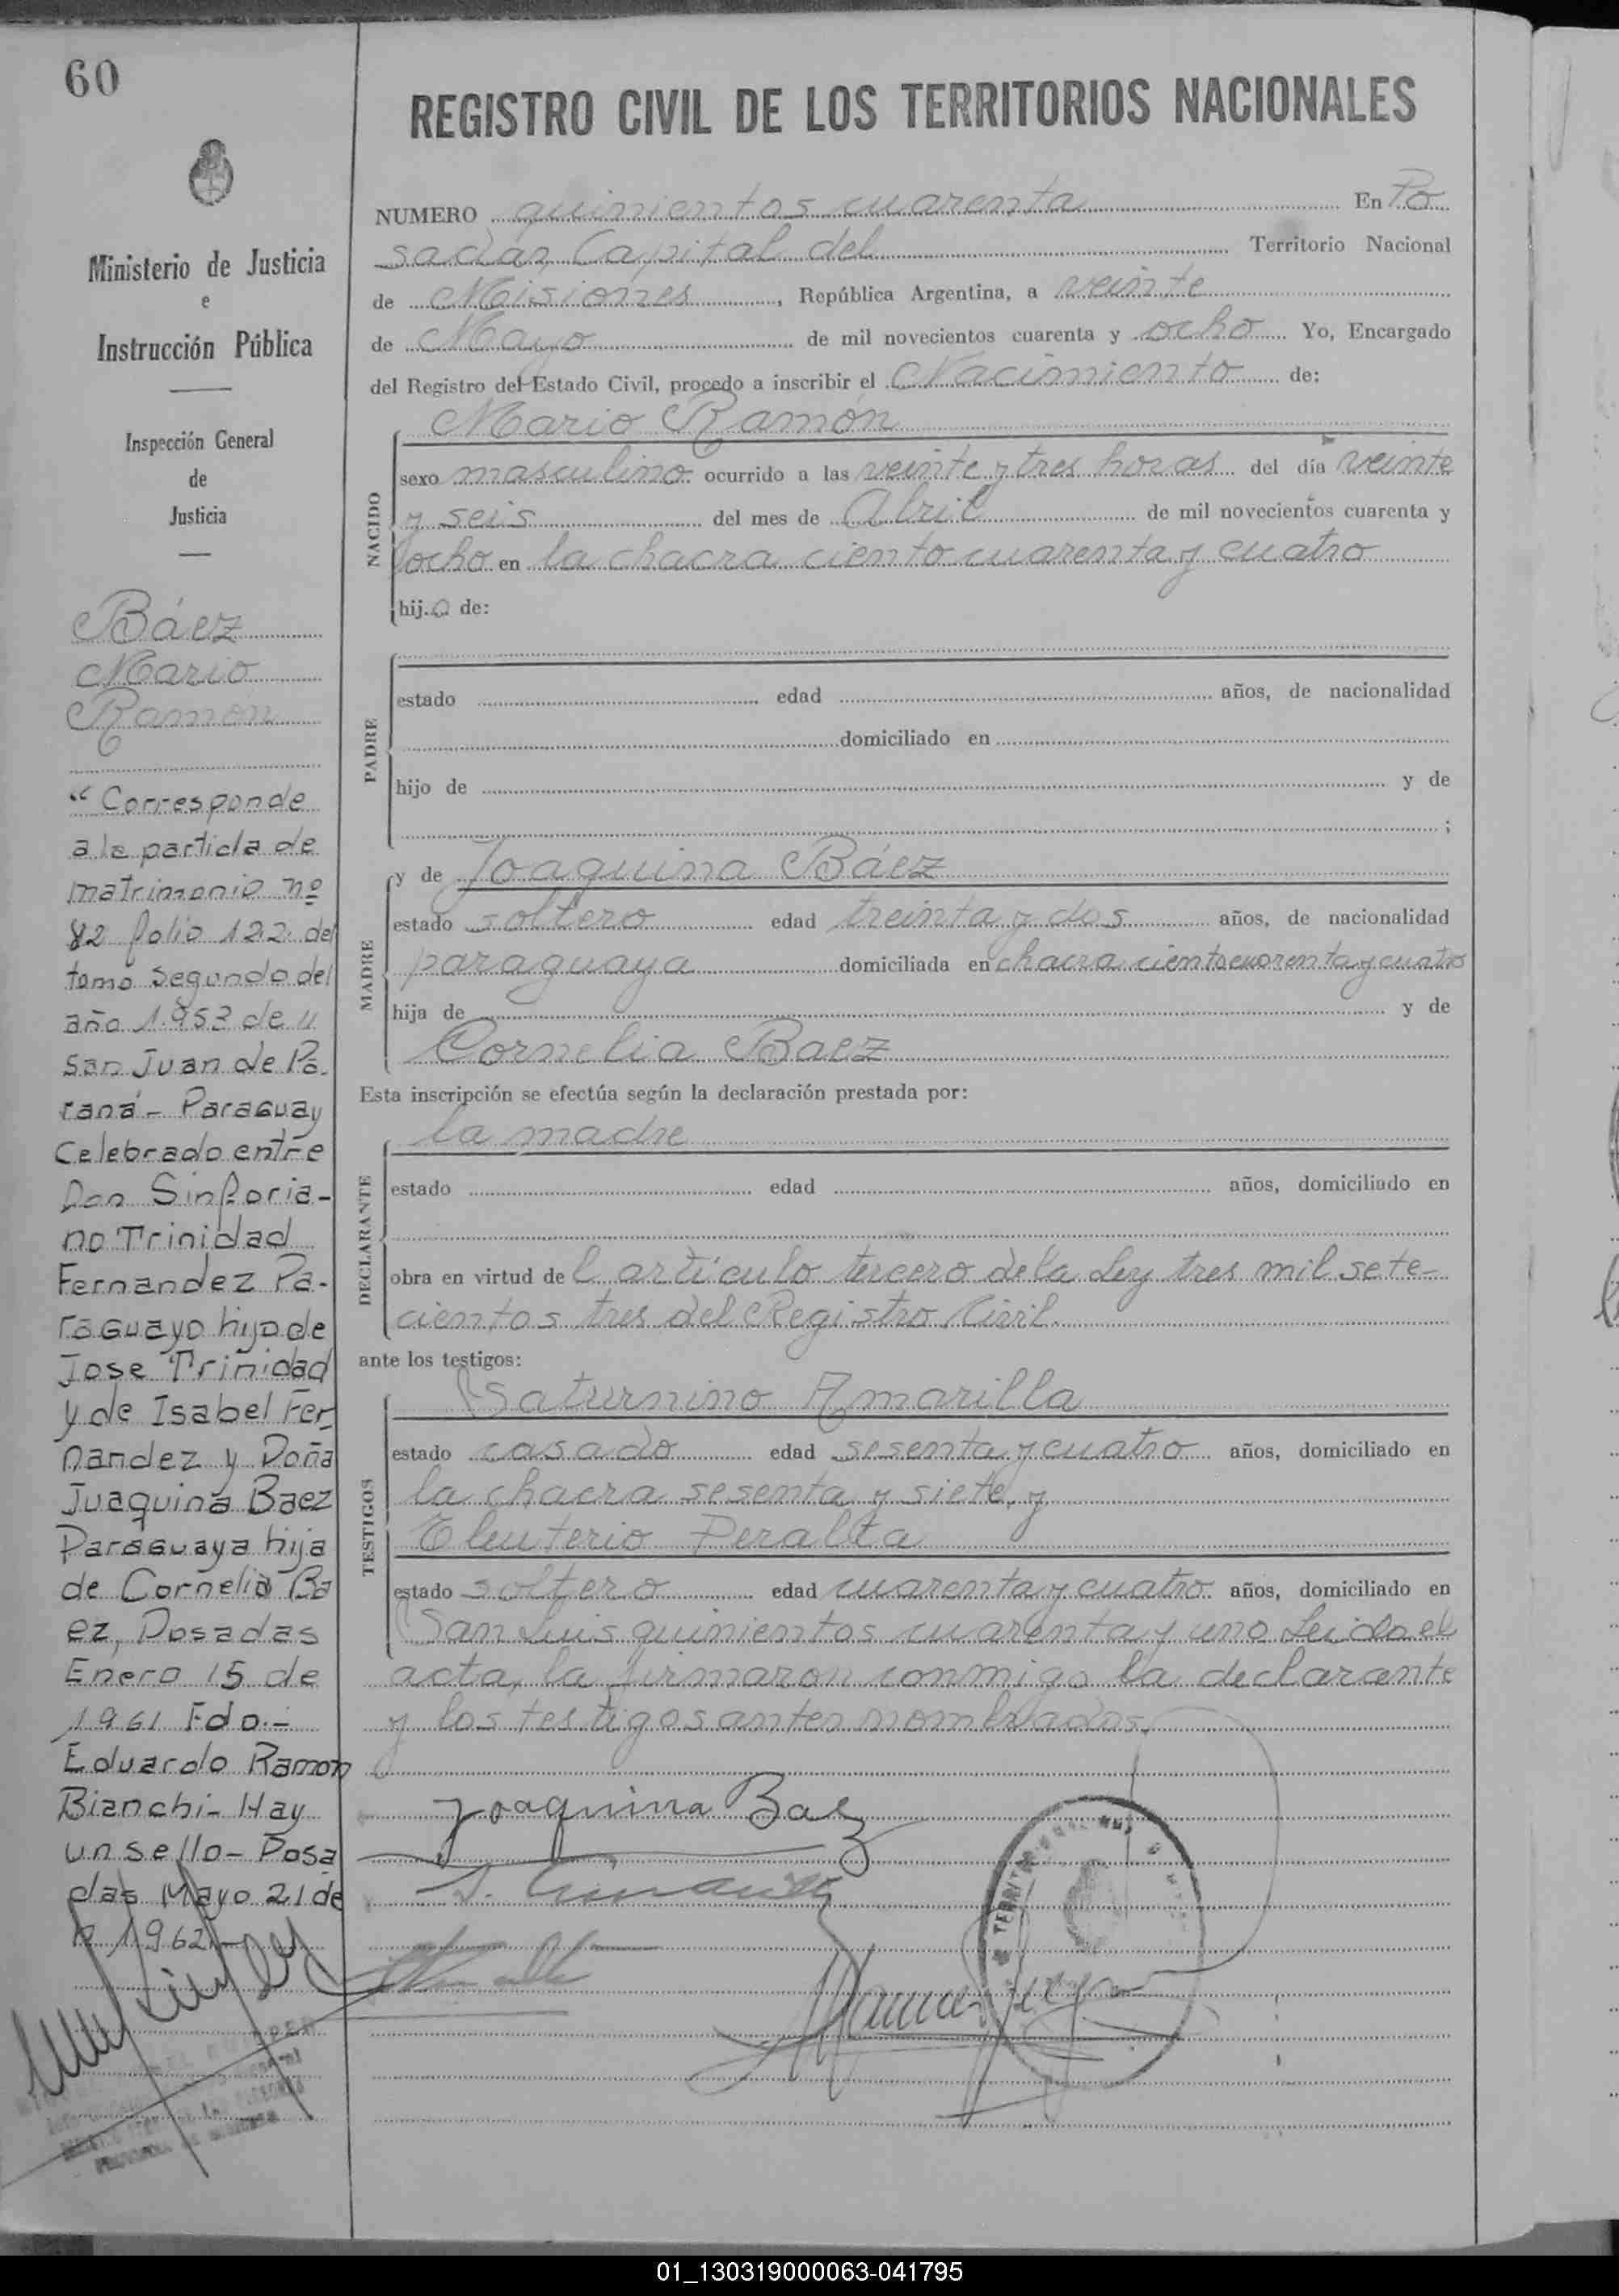 60
Ministerio de Justicia
e
Instrucción Pública
Inspección General
de
Justicia
Báez
Mario
Ramón
“Corresponde
a la partida de
matrimonio nº
82 folio 122 del
tomo segundo del
año 1.953 de "
San Juan de Pa-
raná - Paraguay
Celebrado entre
Don Sinforia-
no Trinidad
Fernandez Pa-
raguayo hijo de
Jose Trinidad
y de Isabel Fer
nandez y Doña
Juaquina Baez
Paraguaya hija
de Cornelia Ba
ez, Posadas
Enero 15 de
1961 Fdo.-
Eduardo Ramon
Bianchi- Hay
un sello- Posa
das Mayo 21 de
1962.-
REGISTRO CIVIL DE LOS TERRITORIOS NACIONALES
NUMERO quinientos cuarenta En Po
sadas, Capital del Territorio Nacional
de Misiones, República Argentina, a veinte
de Mayo de mil novecientos cuarenta y ocho Yo, Encargado
del Registro del Estado Civil, procedo a inscribir el Nacimiento de:
NACIDO
Mario Ramón
sexo masculino ocurrido a las veinte y tres horas del día veinte
y seis del mes de Abril de mil novecientos cuarenta y
ocho en la chacra ciento cuarenta y cuatro
hijo de:
PADRE
estado edad años, de nacionalidad
domiciliado en
hijo de y de
;
MADRE
y de Joaquina Báez
estado soltero edad treinta y dos años, de nacionalidad
paraguaya domiciliada en chacra ciento cuarenta y cuatro
hija de y de
Cornelia Baez
Esta inscripción se efectúa según la declaración prestada por:
DECLARANTE
la madre
estado edad años, domiciliado en
obra en virtud del artículo tercero de la Ley tres mil sete-
cientos tres del Registro Civil.
ante los testigos:
TESTIGOS
Saturnino Amarilla
estado casado edad sesenta y cuatro años, domiciliado en
la chacra sesenta y siete, y
Eleuterio Peralta
estado soltero edad cuarenta y cuatro años, domiciliado en
San Luis quinientos cuarenta y uno Leida el
acta, la firmaron conmigo la declarante
y los testigos antes nombrados.
Joaquina Baez
TERRITORIO
01_130319000063-041795